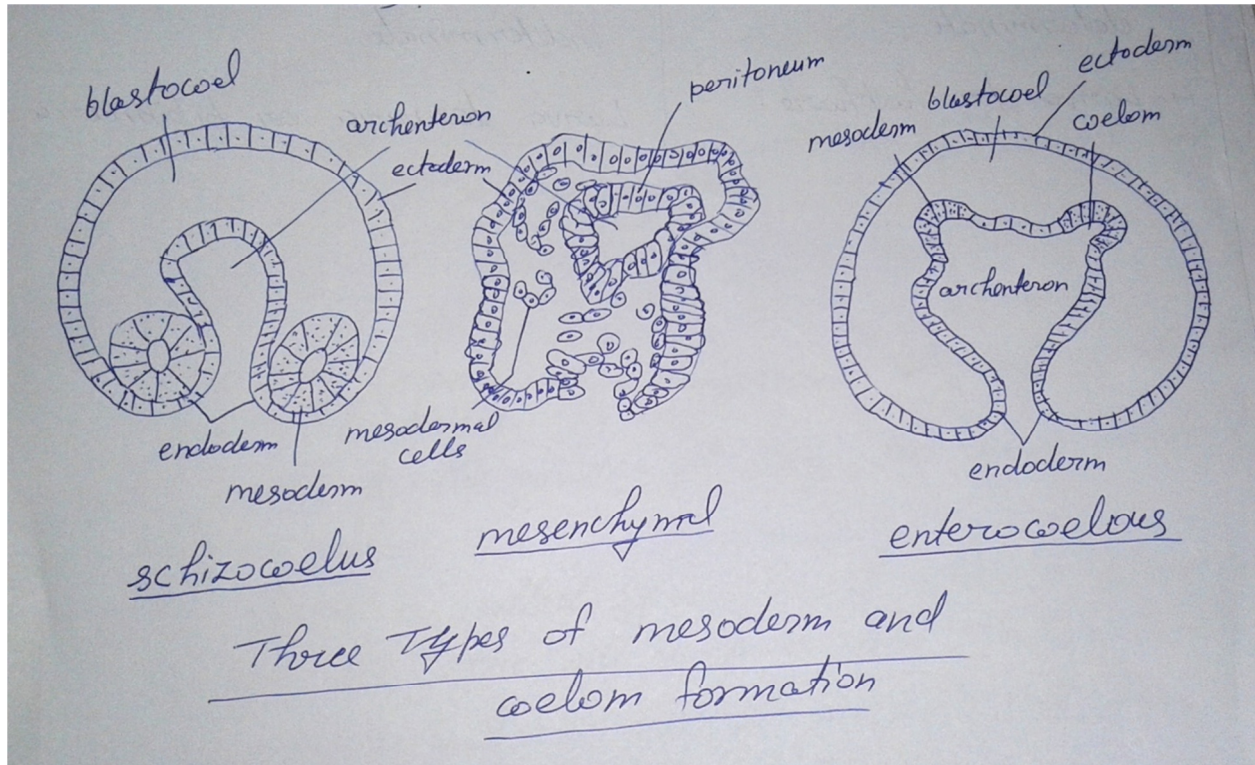 blastocoel
archenteron
ectoderm
endoderm
mesoderm
schizocoelus
peritoneum
mesodermal
cells
mesenchymal
mesoderm
blastocoel
ectoderm
coelom
archenteron
endoderm
enterocoelous
Three Types of mesoderm and
coelom formation